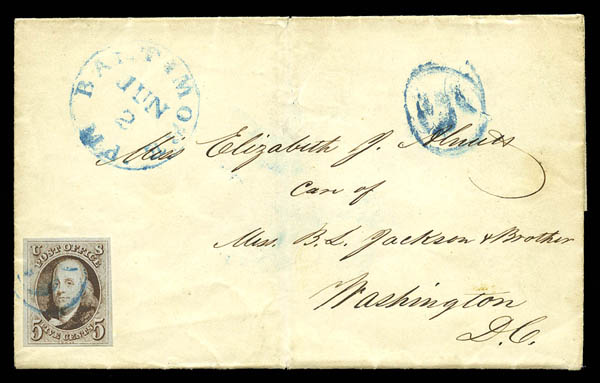 BALTIMORE Md
JUN
2
Miss Elizabeth J.
Care of
Mess. B.L. Jackson & Brother
Washington
D.C.
U S
POST OFFICE
FIVE CENTS
5 5